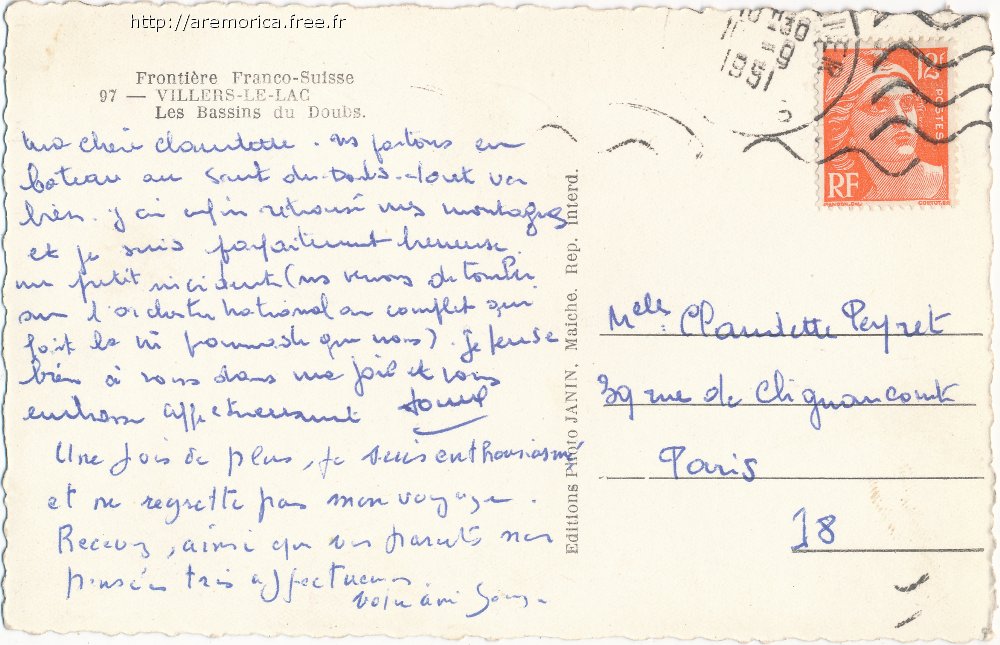 http://aremorica.free.fr
Frontière Franco-Suisse
97 — VILLERS-LE-LAC
Les Bassins du Doubs.
Ma chère Claudette. ns partons en
bateau au Saut du Doubs. va
bien. j'ai enfin retrouvé mes montagnes
et je suis parfaitement heureuse.
un petit incident (ns venons de tomber
sur l'orchestre national au complet qui
fait la m promenade que nous). Je pense
bien à vous dans ma joie et vous
embrasse affectueusement
Une fois de plus, je suis enthousiasmé
et ne regrette pas mon voyage.
Recevez, ainsi que vos parents nos
pensées très affectueuses
votre ami
Editions Photo JANIN, Maiche. Rep. Interd.
10 H 30
11 -9
1951
12F
POSTES
RF
Melle Claudette Peyret
39 rue de Clignancourt
Paris
18